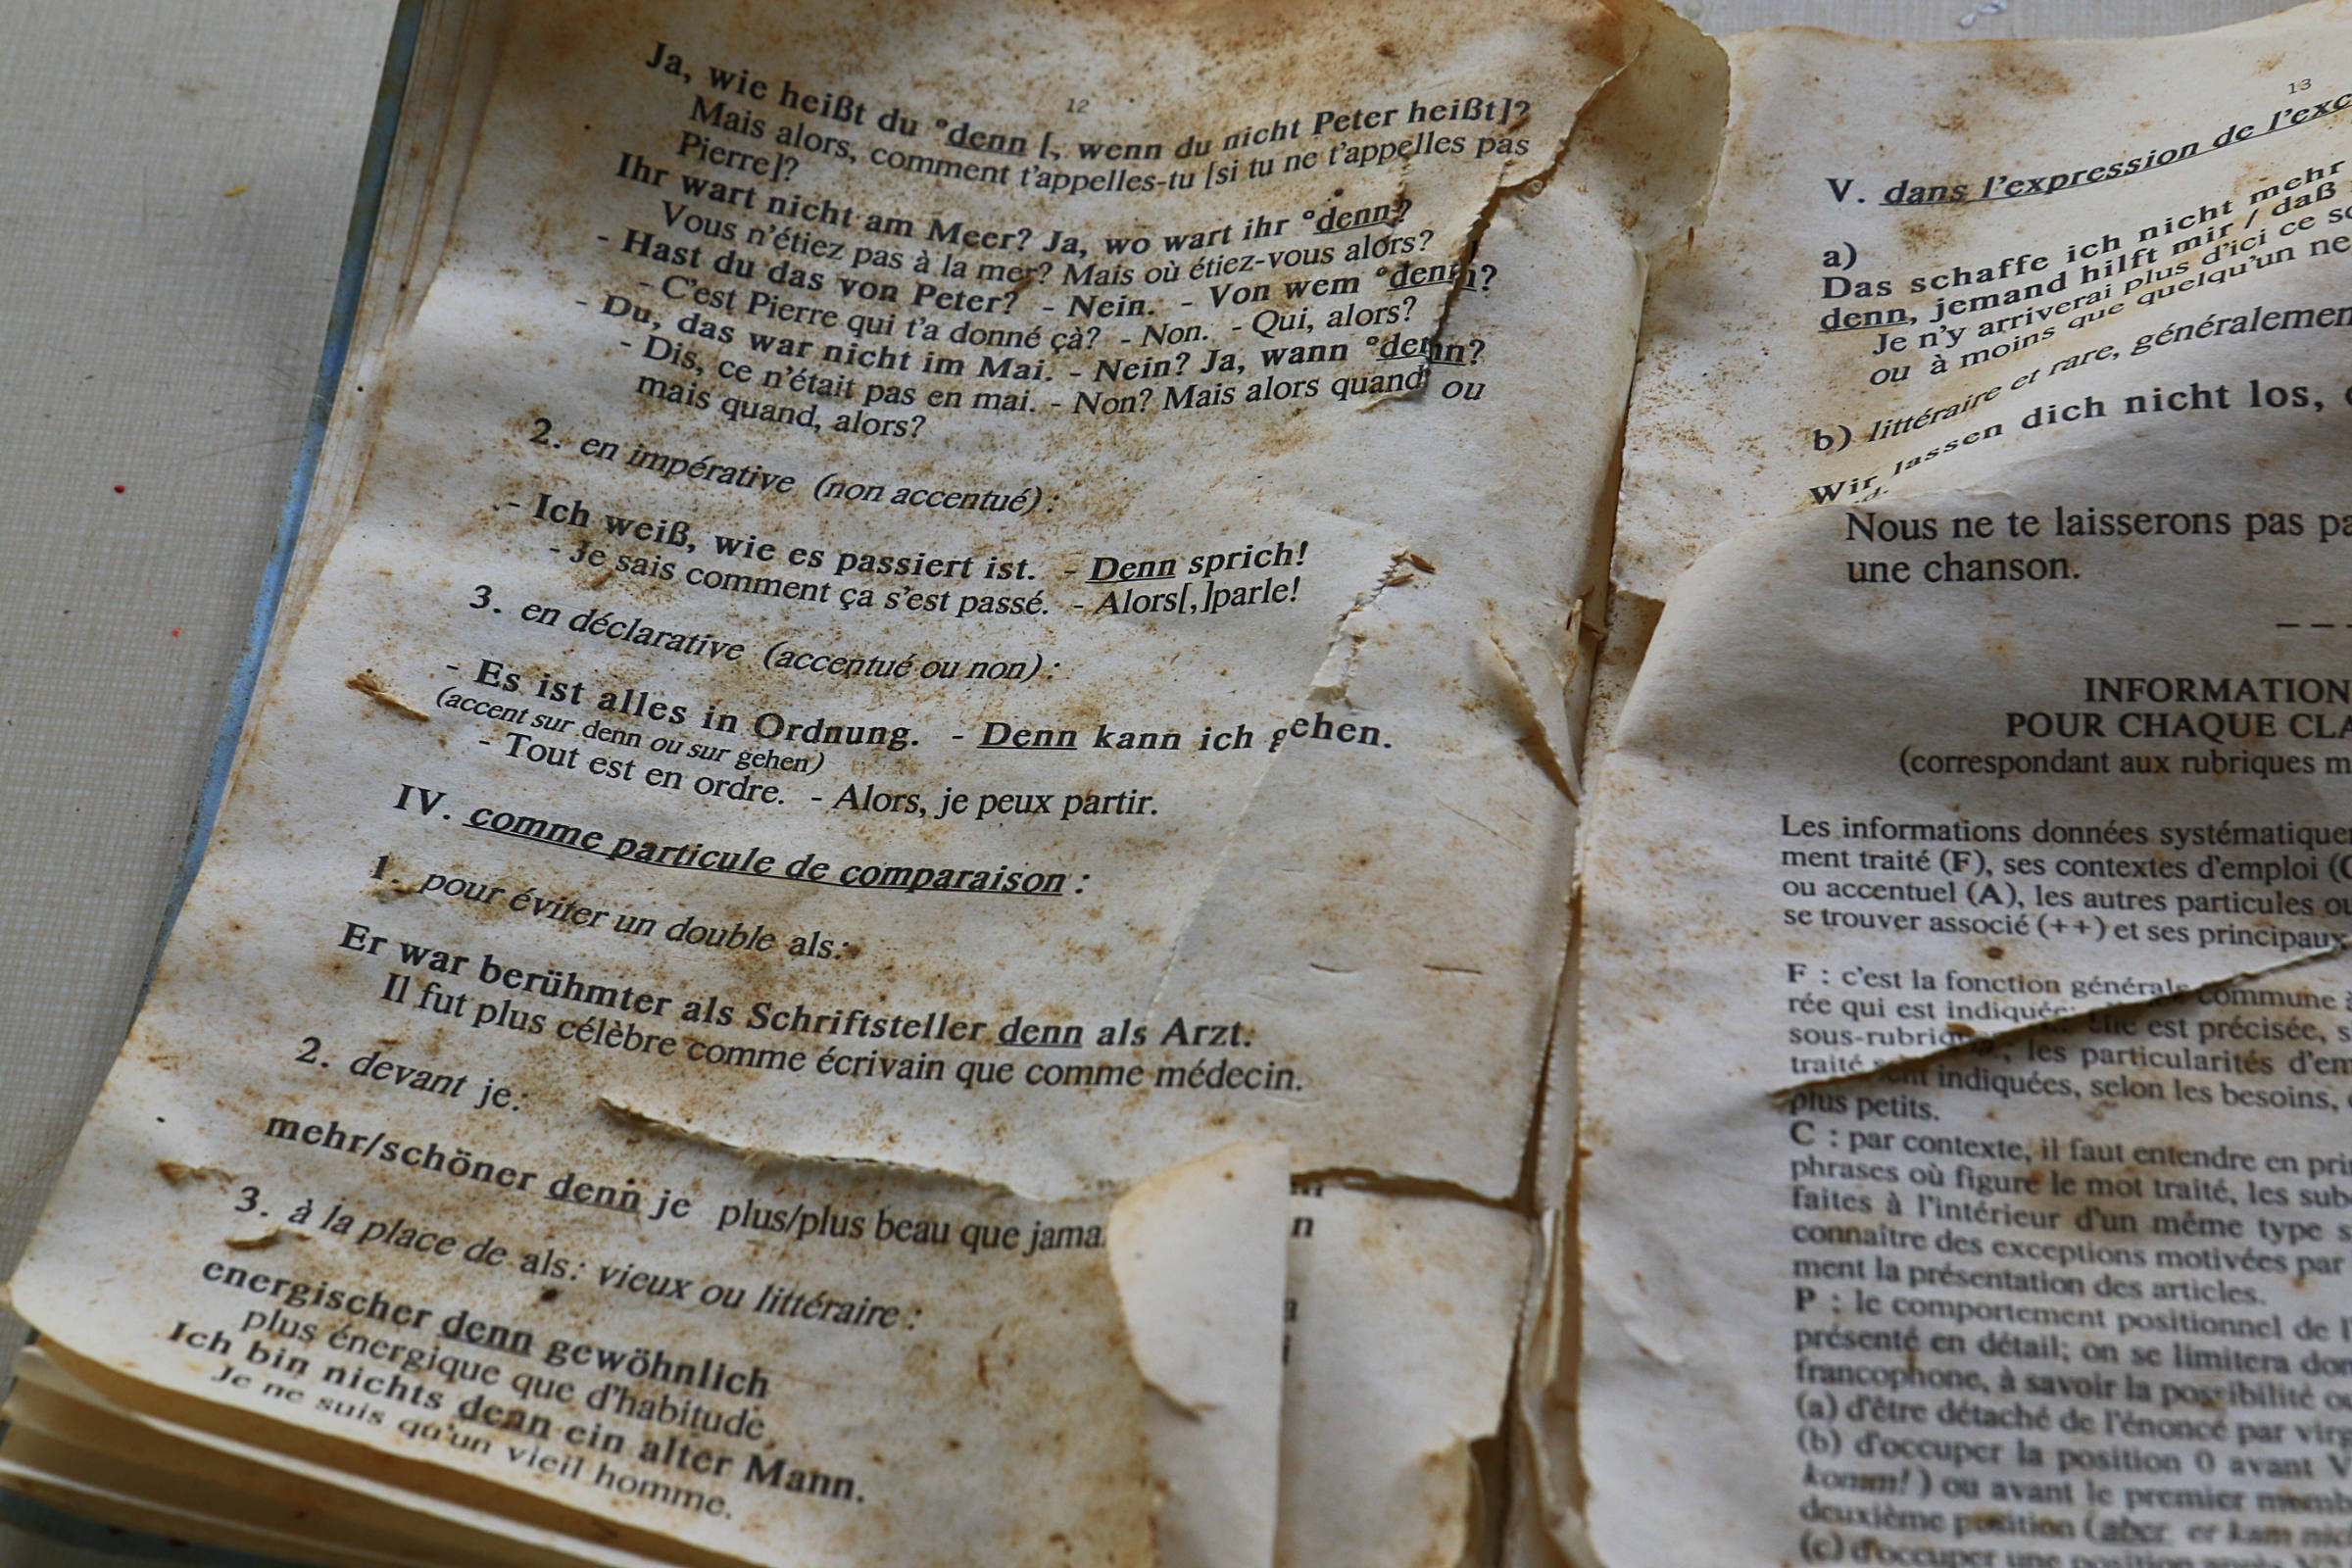 12
Ja, wie heißt du °denn [, wenn du nicht Peter heißt]?
Mais alors, comment t'appelles-tu [si tu ne t'appelles pas
Pierre]?
Ihr wart nicht am Meer? Ja, wo wart ihr °denn?
Vous n'étiez pas à la mer? Mais où étiez-vous alors?
- Hast du das von Peter? - Nein. - Von wem °denn?
- C'est Pierre qui t'a donné çà? - Non. - Qui, alors?
- Du, das war nicht im Mai. - Nein? Ja, wann °denn?
- Dis, ce n'était pas en mai. - Non? Mais alors quand ou
mais quand, alors?
2. en impérative (non accentué) :
- Ich weiß, wie es passiert ist. - Denn sprich!
- Je sais comment ça s'est passé. - Alors[,]parle!
3. en déclarative (accentué ou non) :
- Es ist alles in Ordnung. - Denn kann ich gehen.
(accent sur denn ou sur gehen)
- Tout est en ordre. - Alors, je peux partir.
IV. comme particule de comparaison :
1. pour éviter un double als:
Er war berühmter als Schriftsteller denn als Arzt.
Il fut plus célèbre comme écrivain que comme médecin.
2. devant je:
mehr/schöner denn je plus/plus beau que jama
3. à la place de als: vieux ou littéraire :
energischer denn gewöhnlich
plus énergique que d'habitude
Ich bin nichts denn ein alter Mann.
Je ne suis qu'un vieil homme.
n
13
V. dans l'expression de l'exc
a)
Das schaffe ich nicht mehr
denn, jemand hilft mir / daß
Je n'y arriverai plus d'ici ce so
ou à moins que quelqu'un ne
b) littéraire et rare, généralemen
Wir lassen dich nicht los,
Nous ne te laisserons pas pa
une chanson.
INFORMATION
POUR CHAQUE CLA
(correspondant aux rubriques m
Les informations données systématique
ment traité (F), ses contextes d'emploi (C
ou accentuel (A), les autres particules ou
se trouver associé (++) et ses principaux
F : c'est la fonction générale commune
rée qui est indiquée est précisée, s
les particularités d'em
traité indiquées, selon les besoins,
plus petits.
C : par contexte, il faut entendre en prin
phrases où figure le mot traité, les sub
faites à l'intérieur d'un même type s
connaître des exceptions motivées par
ment la présentation des articles.
P : le comportement positionnel de l'
présenté en détail; on se limitera don
francophone, à savoir la possibilité o
(a) d'être détaché de l'énoncé par virg
(b) d'occuper la position 0 avant V
komm! ) ou avant le premier memb
deuxième position (aber er kam nic
(c) d'occuper une